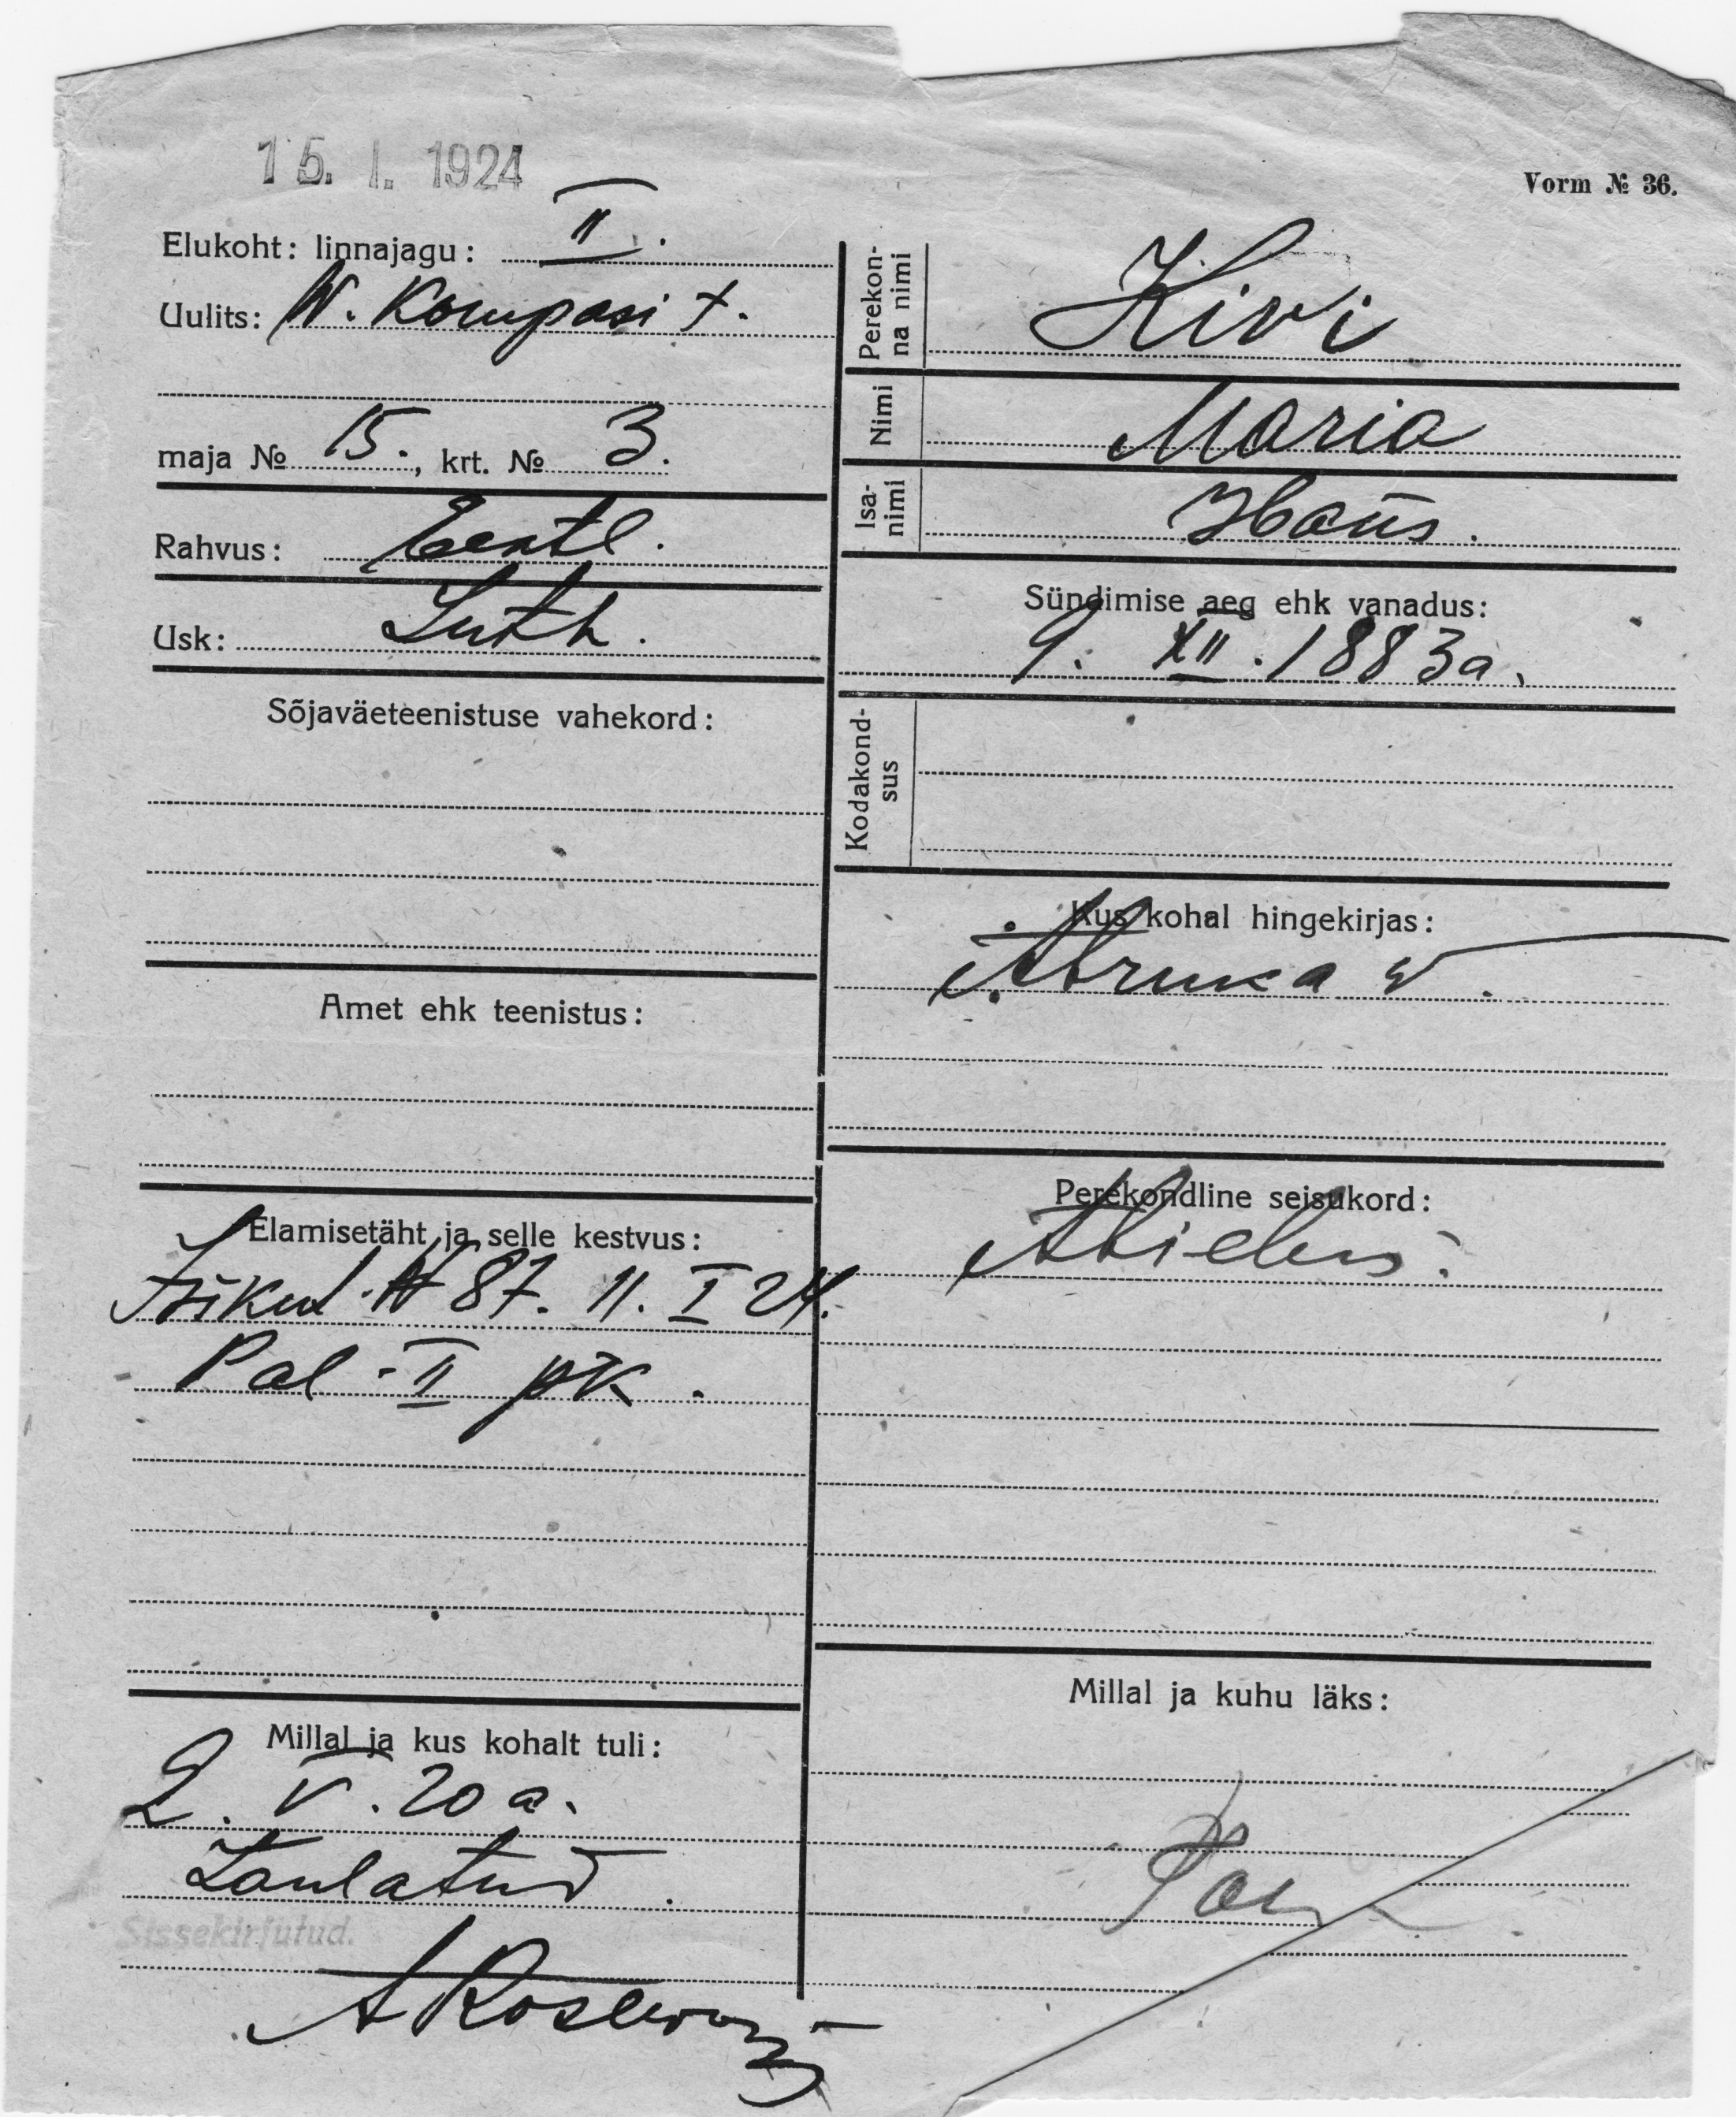 15. I. 1924
Vorm № 36.
Elukoht: linnajagu: II.
Uulits: W. Kompasi t.
maja № 15., krt. № 3.
Rahvus: Eestl.
Usk: Luth.
Sõjaväeteenistuse vahekord:
Amet ehk teenistus:
Elamisetäht ja selle kestvus:
Isikut. № 87. 11. I 24.
Pal - II pk.
Millal ja kus kohalt tuli:
2. V. 20 a.
Laulatud.
Sissekirjutud.
Perekon-
na nimi
Kivi
Nimi
Maria
Isa-
nimi
Hans.
Sündimise aeg ehk vanadus:
9. XII. 1883 a.
Kodakond-
sus
Kus kohal hingekirjas:
Abruka v.
Perekondline seisukord:
Abielus.
Millal ja kuhu läks: